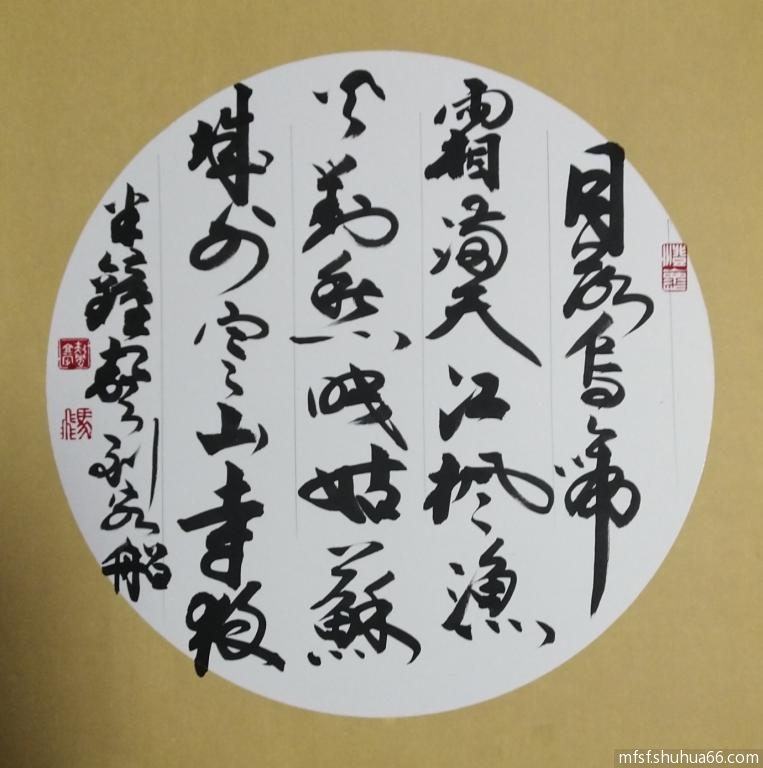 月落烏啼
霜滿天江楓漁
火對愁眠姑蘇
城外寒山寺夜
半鐘聲到客船
mfsfshuhua66.com